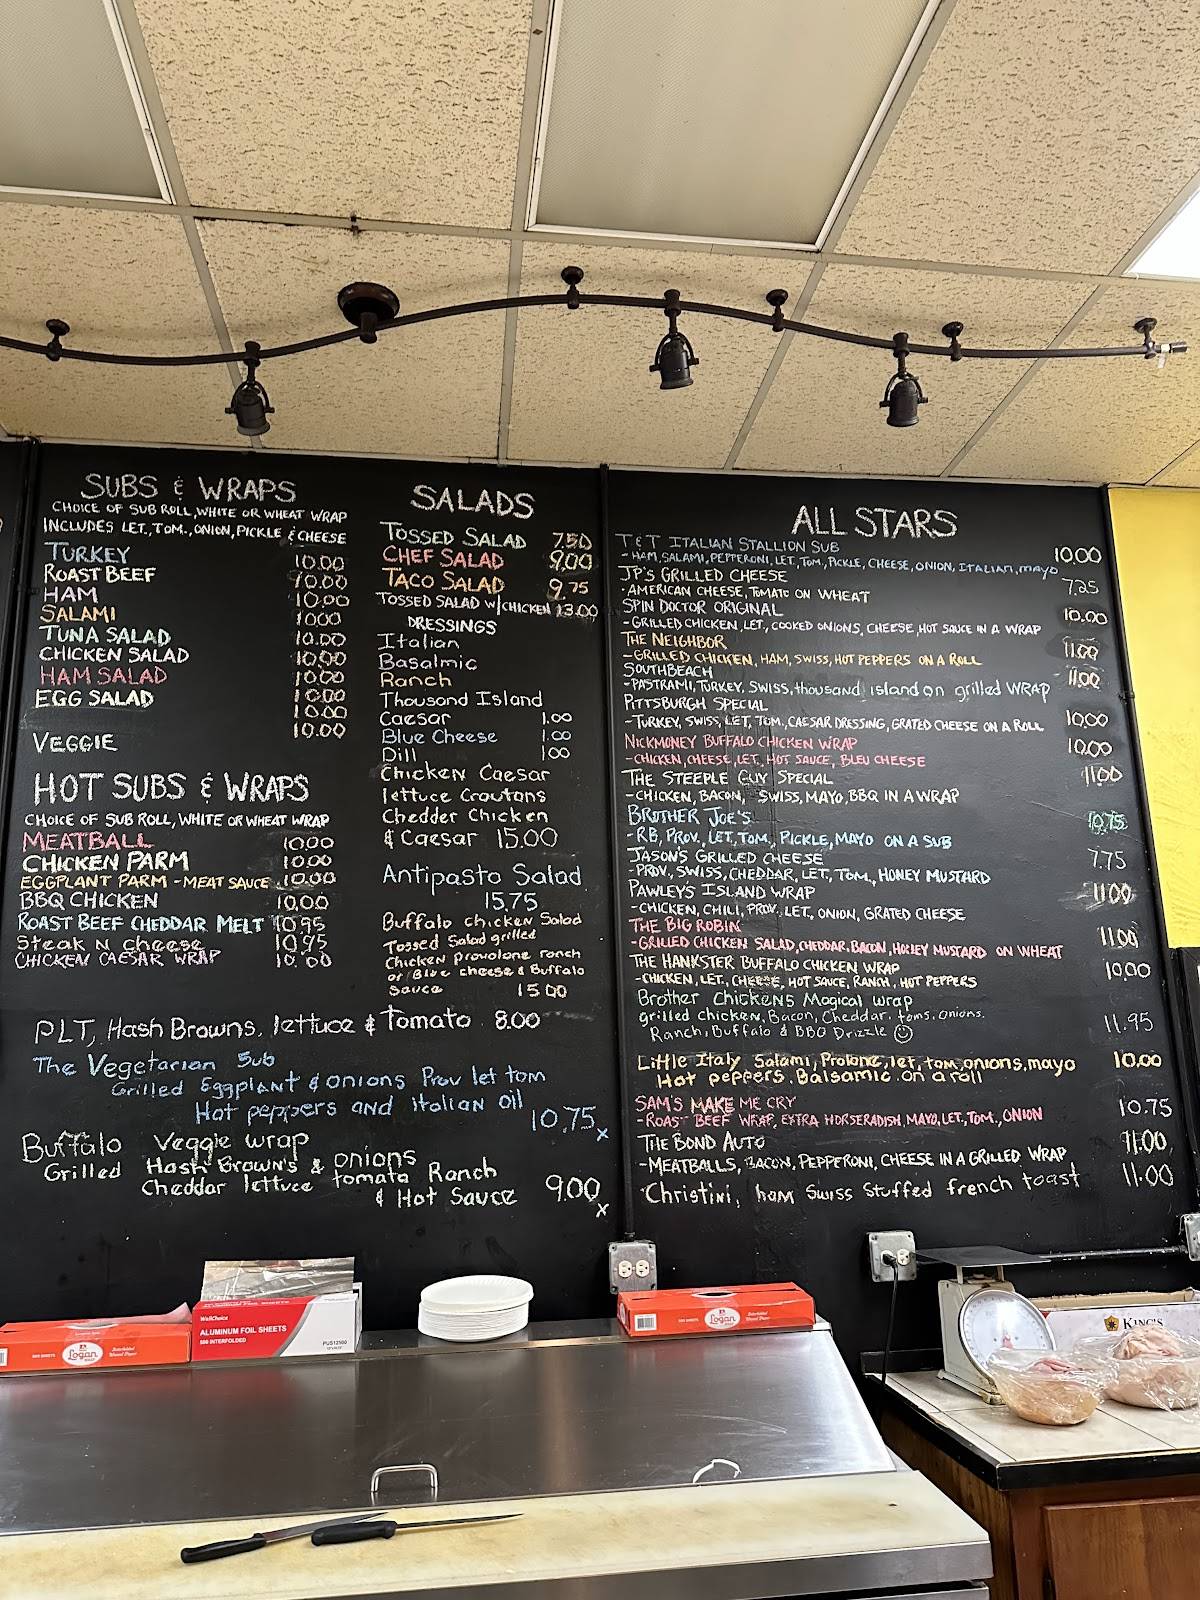 SUBS & WRAPS
CHOICE OF SUB ROLL, WHITE OR WHEAT WRAP
INCLUDES LET., TOM., ONION, PICKLE & CHEESE
TURKEY 10.00
ROAST BEEF 10.00
HAM 10.00
SALAMI 10.00
TUNA SALAD 10.00
CHICKEN SALAD 10.00
HAM SALAD 10.00
EGG SALAD 10.00
10.00
VEGGIE 10.00
HOT SUBS & WRAPS
CHOICE OF SUB ROLL, WHITE OR WHEAT WRAP
MEATBALL 10.00
CHICKEN PARM 10.00
EGGPLANT PARM - MEAT SAUCE 10.00
BBQ CHICKEN 10.00
ROAST BEEF CHEDDAR MELT 10.95
Steak N cheese 10.95
CHICKEN CAESAR WRAP 10.00
SALADS
TOSSED SALAD 7.50
CHEF SALAD 9.00
TACO SALAD 9.75
TOSSED SALAD W/CHICKEN 13.00
DRESSINGS
Italian
Basalmic
Ranch
Thousand Island
Caesar 1.00
Blue Cheese 1.00
Dill 1.00
Chicken Caesar
lettuce Croutons
Chedder Chicken
& Caesar 15.00
Antipasto Salad
15.75
Buffalo chicken Salad
Tossed Salad grilled
Chicken provolone ranch
or Blue cheese & Buffalo
Sauce 15.00
PLT, Hash Browns, lettuce & Tomato 8.00
The Vegetarian Sub
Grilled Eggplant & onions Prov let tom
Hot peppers and italian oil
10.75 x
Buffalo Veggie wrap
Grilled Hash Brown's & onions
Cheddar lettuce tomato Ranch
& Hot Sauce 9.00 x
ALL STARS
T & T ITALIAN STALLION SUB 10.00
- HAM, SALAMI, PEPPERONI, LET, TOM, PICKLE, CHEESE, ONION, ITALIAN, mayo
JP'S GRILLED CHEESE 7.25
- AMERICAN CHEESE, TOMATO ON WHEAT
SPIN DOCTOR ORIGINAL 10.00
- GRILLED CHICKEN, LET., COOKED ONIONS, CHEESE, HOT SAUCE IN A WRAP
THE NEIGHBOR 11.00
- GRILLED CHICKEN, HAM, SWISS, HOT PEPPERS ON A ROLL
SOUTHBEACH 11.00
- PASTRAMI, TURKEY, SWISS, thousand island on grilled WRAP
PITTSBURGH SPECIAL 10.00
- TURKEY, SWISS, LET, TOM., CAESAR DRESSING, GRATED CHEESE ON A ROLL
NICKMONEY BUFFALO CHICKEN WRAP 10.00
- CHICKEN, CHEESE, LET, HOT SAUCE, BLEU CHEESE
THE STEEPLE GUY SPECIAL 11.00
- CHICKEN, BACON, SWISS, MAYO, BBQ IN A WRAP
BROTHER JOE'S 10.75
- RB, PROV., LET, TOM., PICKLE, MAYO ON A SUB
JASON'S GRILLED CHEESE 7.75
- PROV, SWISS, CHEDDAR, LET, TOM., HONEY MUSTARD
PAWLEY'S ISLAND WRAP 11.00
- CHICKEN, CHILI, PROV, LET, ONION, GRATED CHEESE
THE BIG ROBIN 11.00
- GRILLED CHICKEN SALAD, CHEDDAR, BACON, HONEY MUSTARD ON WHEAT
THE HANKSTER BUFFALO CHICKEN WRAP 10.00
- CHICKEN, LET, CHEESE, HOT SAUCE, RANCH, HOT PEPPERS
Brother Chickens Magical wrap
grilled chicken, Bacon, Cheddar, toms, onions. 11.95
Ranch, Buffalo & BBQ Drizzle ☺
Little Italy Salami, Prolone, let, tom, onions, mayo 10.00
Hot peppers. Balsamic. on a roll
SAM'S MAKE ME CRY 10.75
- ROAST BEEF WRAP, EXTRA HORSERADISH, MAYO, LET., TOM., ONION
THE BOND AUTO 11.00
- MEATBALLS, BACON, PEPPERONI, CHEESE IN A GRILLED WRAP
Christini, ham Swiss Stuffed french toast 11.00
Logan
WellChoice
ALUMINUM FOIL SHEETS
500 INTERFOLDED
PUS12100
Logan
KING'S